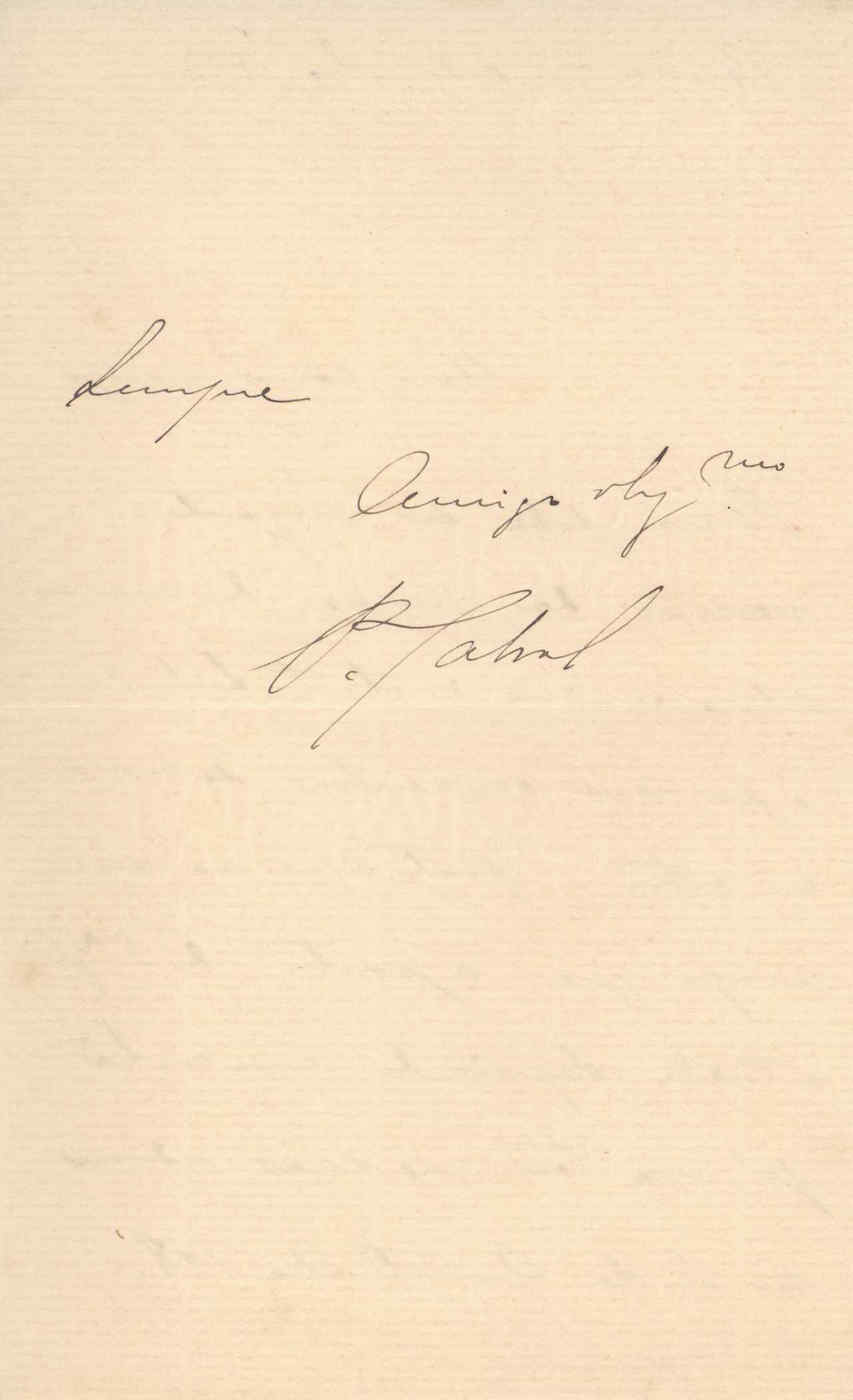 Sempre
Amigo obg.mo
P. Cabral